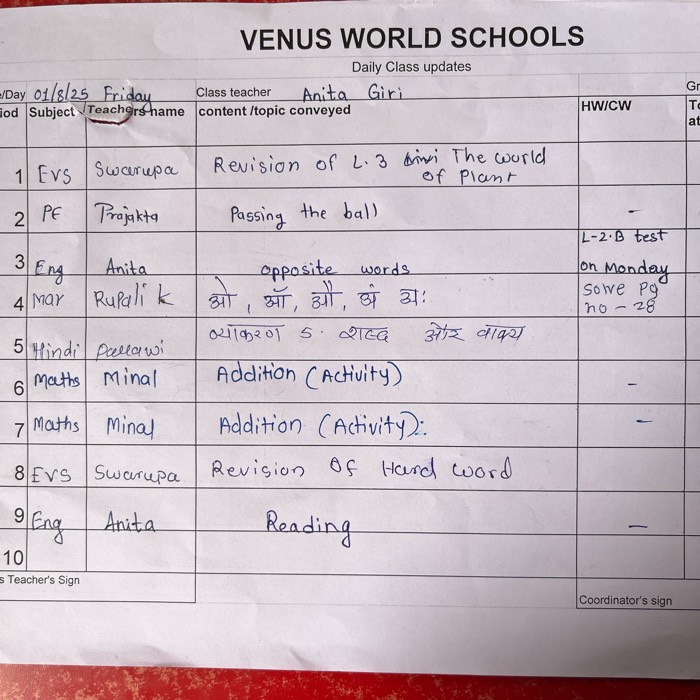 VENUS WORLD SCHOOLS
Daily Class updates
/Day 01/8/25 Friday Class teacher Anita Giri Gr
iod Subject Teachers name content /topic conveyed HW/CW To
at
1 EVS Swarupa Revision of L.3 The world
of Plant
2 PE Prajakta Passing the ball -
3 Eng Anita opposite words L-2.B test
on Monday
4 Mar Rupali k ओ, ऑ, औ, अं अः Solve Pg
no - 28
5 Hindi Pallawi व्याकरण 5. शब्द और वाक्य
6 Maths Minal Addition (Activity) -
7 Maths Minal Addition (Activity): -
8 EVS Swarupa Revision Of Hard word
9 Eng Anita Reading -
10
s Teacher's Sign
Coordinator's sign